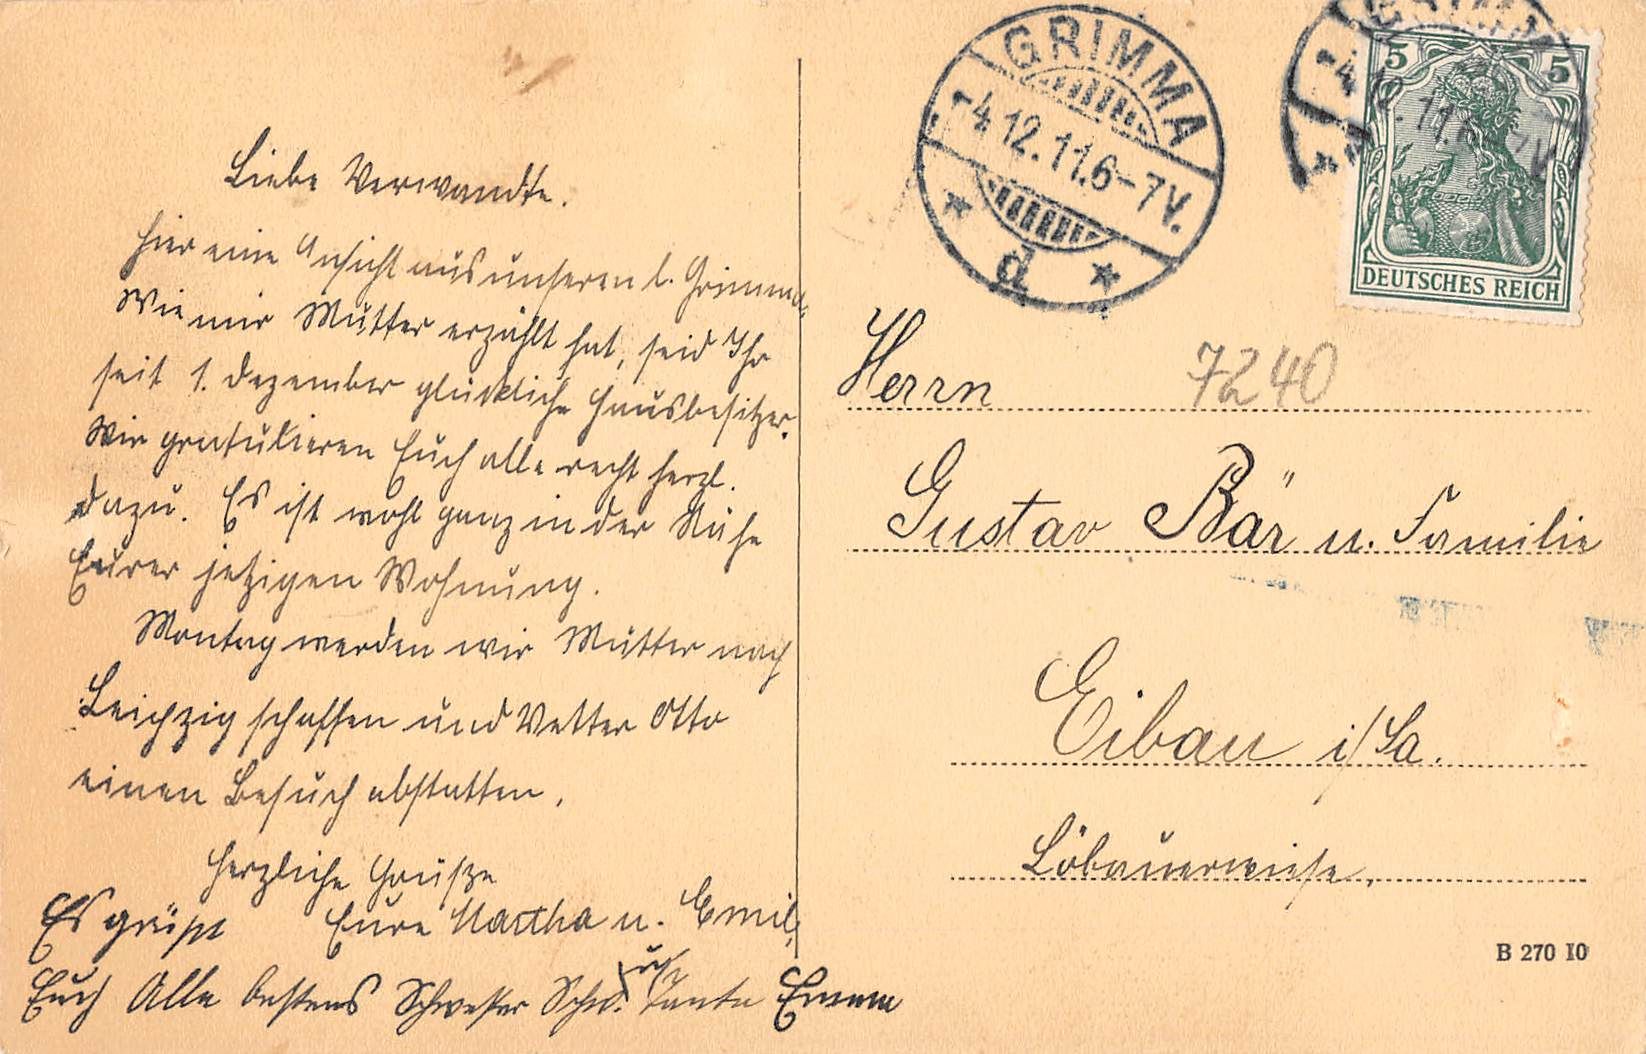 Liebe Verwandte.
Hier eine Ansicht aus unseren l. Grimma.
Wie mir Mutter erzählt hat, seid Ihr
seit 1. Dezember glückliche Hausbesitzer.
Wir gratulieren Euch alle recht herzl.
dazu. Es ist wohl ganz in der Nähe
Eurer jetzigen Wohnung.
Montag werden wir Mutter nach
Leipzig schaffen und Vetter Otto
einen Besuch abstatten.
Herzliche Grüße
Eure Martha u. Emil,
Es grüßt
Euch Alle bestens Schwester Schw. und Tante Emma
GRIMMA
-4.12.11.6-7V.
d
GRIMMA
-4.12.11.6-7V
5 5
DEUTSCHES REICH
Herrn
7240
Gustav Bär u. Familie
Eibau i/Sa.
Löbauerwiese.
B 270 10